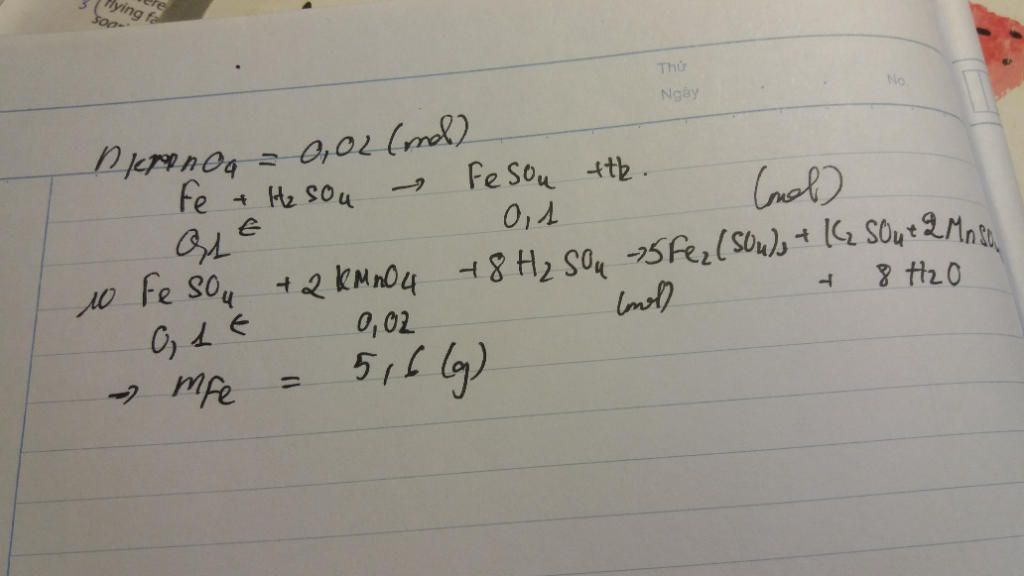 ere
3 (flying fa
Thứ
Ngày
No.
nKMnO4 = 0,02 (mol)
Fe + H2SO4 → FeSO4 + H2.
0,1 ← 0,1 (mol)
10 FeSO4 + 2 KMnO4 + 8 H2SO4 → 5Fe2(SO4)3 + K2SO4 + 2MnSO
+ 8 H2O
0,1 ← 0,02 (mol)
→ mFe = 5,6 (g)